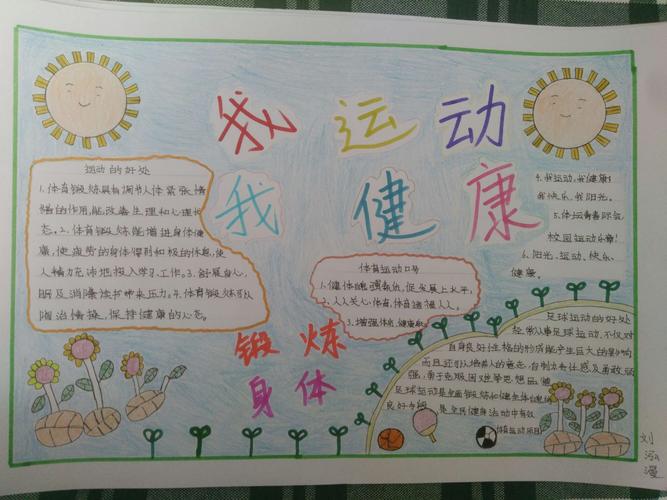 我运动
我健康
运动的好处
1.体育锻炼具有调节人体紧张情
绪的作用,能改善生理和心理状
态。2.体育锻炼能增进身体健
康,使疲劳的身体得到积极的休息,使
人精力充沛地投入学习、工作。3.舒展身心,
眠及消除读书带来压力。4.体育锻炼可以
陶冶情操,保持健康的心态。
体育运动口号
1.健体魄强素质,促发展上水平。
2.人人关心体育,体育造福人人。
3.增强体质,健康
4.我运动,我健康!
我快乐,我阳光。
5.体坛青春际会
校园运动乐章!
6.阳光、运动、快乐、
健康。
足球运动的好处
经常从事足球运动,不仅对
自身良好性格的形成能产生巨大的影响
而且还可以培养人的意志,自制力
强,勇于克服困难等思想品德
足球运动是全面锻炼和健全体魄的
良好手段 是全民健身活动中有效
体育运动项目
锻炼
身体
刘
泓
漫